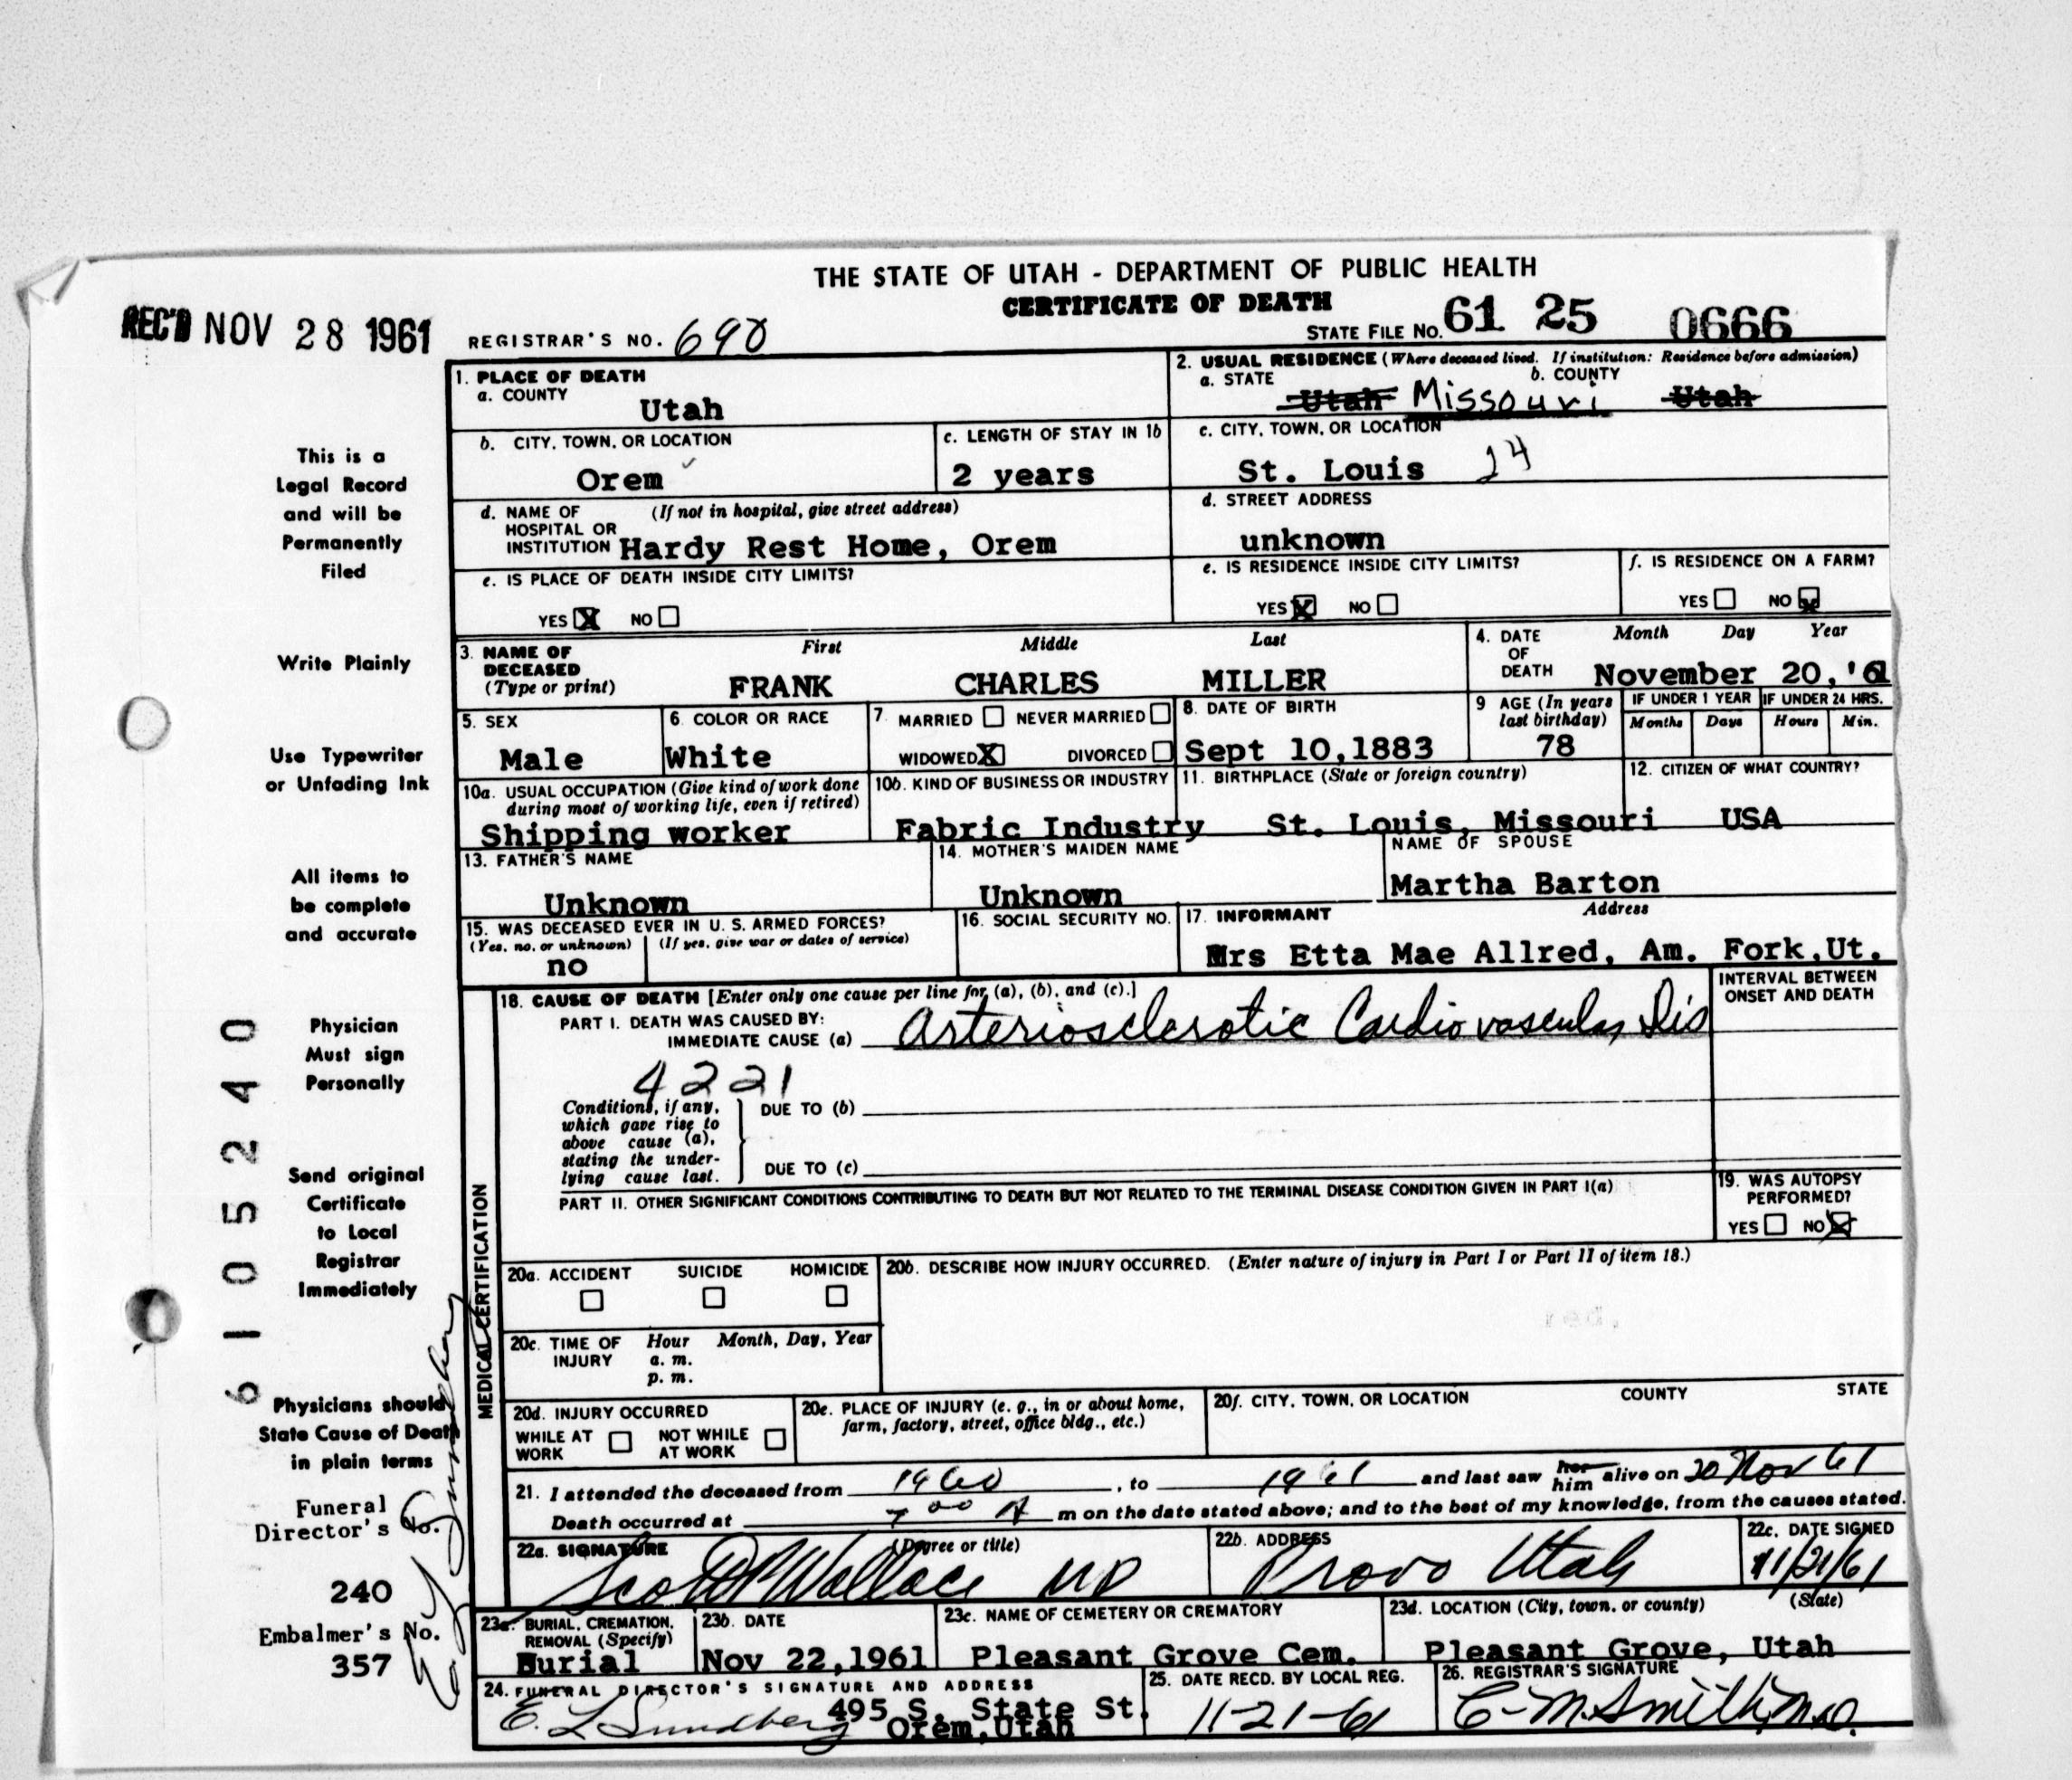 THE STATE OF UTAH - DEPARTMENT OF PUBLIC HEALTH
CERTIFICATE OF DEATH
REC'D NOV 28 1961
REGISTRAR'S NO. 690
STATE FILE NO. 61 25 0666
1. PLACE OF DEATH
a. COUNTY
Utah
2. USUAL RESIDENCE (Where deceased lived. If institution: Residence before admission)
a. STATE b. COUNTY
Utah Missouri Utah
b. CITY, TOWN, OR LOCATION
Orem
c. LENGTH OF STAY IN 1b
2 years
c. CITY, TOWN, OR LOCATION
St. Louis 24
d. NAME OF (If not in hospital, give street address)
HOSPITAL OR
INSTITUTION Hardy Rest Home, Orem
d. STREET ADDRESS
unknown
e. IS PLACE OF DEATH INSIDE CITY LIMITS?
YES X NO
e. IS RESIDENCE INSIDE CITY LIMITS?
YES X NO
f. IS RESIDENCE ON A FARM?
YES NO X
3. NAME OF DECEASED (Type or print)
First Middle Last
FRANK CHARLES MILLER
4. DATE OF DEATH
Month Day Year
November 20,'61
5. SEX
Male
6. COLOR OR RACE
White
7. MARRIED NEVER MARRIED
WIDOWED X DIVORCED
8. DATE OF BIRTH
Sept 10,1883
9 AGE (In years last birthday)
78
IF UNDER 1 YEAR
Months Days
IF UNDER 24 HRS.
Hours Min.
10a. USUAL OCCUPATION (Give kind of work done
during most of working life, even if retired)
Shipping worker
10b. KIND OF BUSINESS OR INDUSTRY
Fabric Industry
11. BIRTHPLACE (State or foreign country)
St. Louis, Missouri
12. CITIZEN OF WHAT COUNTRY?
USA
13. FATHER'S NAME
Unknown
14. MOTHER'S MAIDEN NAME
Unknown
NAME OF SPOUSE
Martha Barton
15. WAS DECEASED EVER IN U. S. ARMED FORCES?
(Yes, no, or unknown) (If yes, give war or dates of service)
no
16. SOCIAL SECURITY NO.
17. INFORMANT Address
Mrs Etta Mae Allred, Am. Fork,Ut.
MEDICAL CERTIFICATION
18. CAUSE OF DEATH [Enter only one cause per line for (a), (b), and (c).]
PART I. DEATH WAS CAUSED BY:
IMMEDIATE CAUSE (a) Arteriosclerotic Cardiovascular Dis
INTERVAL BETWEEN
ONSET AND DEATH
4221
Conditions, if any,
which gave rise to
above cause (a),
stating the under-
lying cause last.
DUE TO (b)
DUE TO (c)
PART II. OTHER SIGNIFICANT CONDITIONS CONTRIBUTING TO DEATH BUT NOT RELATED TO THE TERMINAL DISEASE CONDITION GIVEN IN PART I(a)
19. WAS AUTOPSY
PERFORMED?
YES NO X
20a. ACCIDENT SUICIDE HOMICIDE
20b. DESCRIBE HOW INJURY OCCURRED. (Enter nature of injury in Part I or Part II of item 18.)
20c. TIME OF INJURY
Hour Month, Day, Year
a. m.
p. m.
20d. INJURY OCCURRED
WHILE AT WORK NOT WHILE AT WORK
20e. PLACE OF INJURY (e. g., in or about home,
farm, factory, street, office bldg., etc.)
20f. CITY, TOWN, OR LOCATION COUNTY STATE
21. I attended the deceased from 1960, to 1961 and last saw her him alive on 20 Nov 61
Death occurred at 7 00 A m on the date stated above; and to the best of my knowledge, from the causes stated.
22a. SIGNATURE (Degree or title)
Scott P Wallace MD
22b. ADDRESS
Provo Utah
22c. DATE SIGNED
11/21/61
23a. BURIAL, CREMATION,
REMOVAL (Specify)
Burial
23b. DATE
Nov 22,1961
23c. NAME OF CEMETERY OR CREMATORY
Pleasant Grove Cem.
23d. LOCATION (City, town, or county) (State)
Pleasant Grove, Utah
24. FUNERAL DIRECTOR'S SIGNATURE AND ADDRESS
E. L Sundberg 495 S. State St.
Orem,Utah
25. DATE RECD. BY LOCAL REG.
11-21-61
26. REGISTRAR'S SIGNATURE
C-M.Smith, M.D.
This is a
Legal Record
and will be
Permanently
Filed
Write Plainly
Use Typewriter
or Unfading Ink
All items to
be complete
and accurate
Physician
Must sign
Personally
Send original
Certificate
to Local
Registrar
Immediately
Physicians should
State Cause of Death
in plain terms
Funeral
Director's No.
240
Embalmer's No.
357
E L Sundberg
6105240